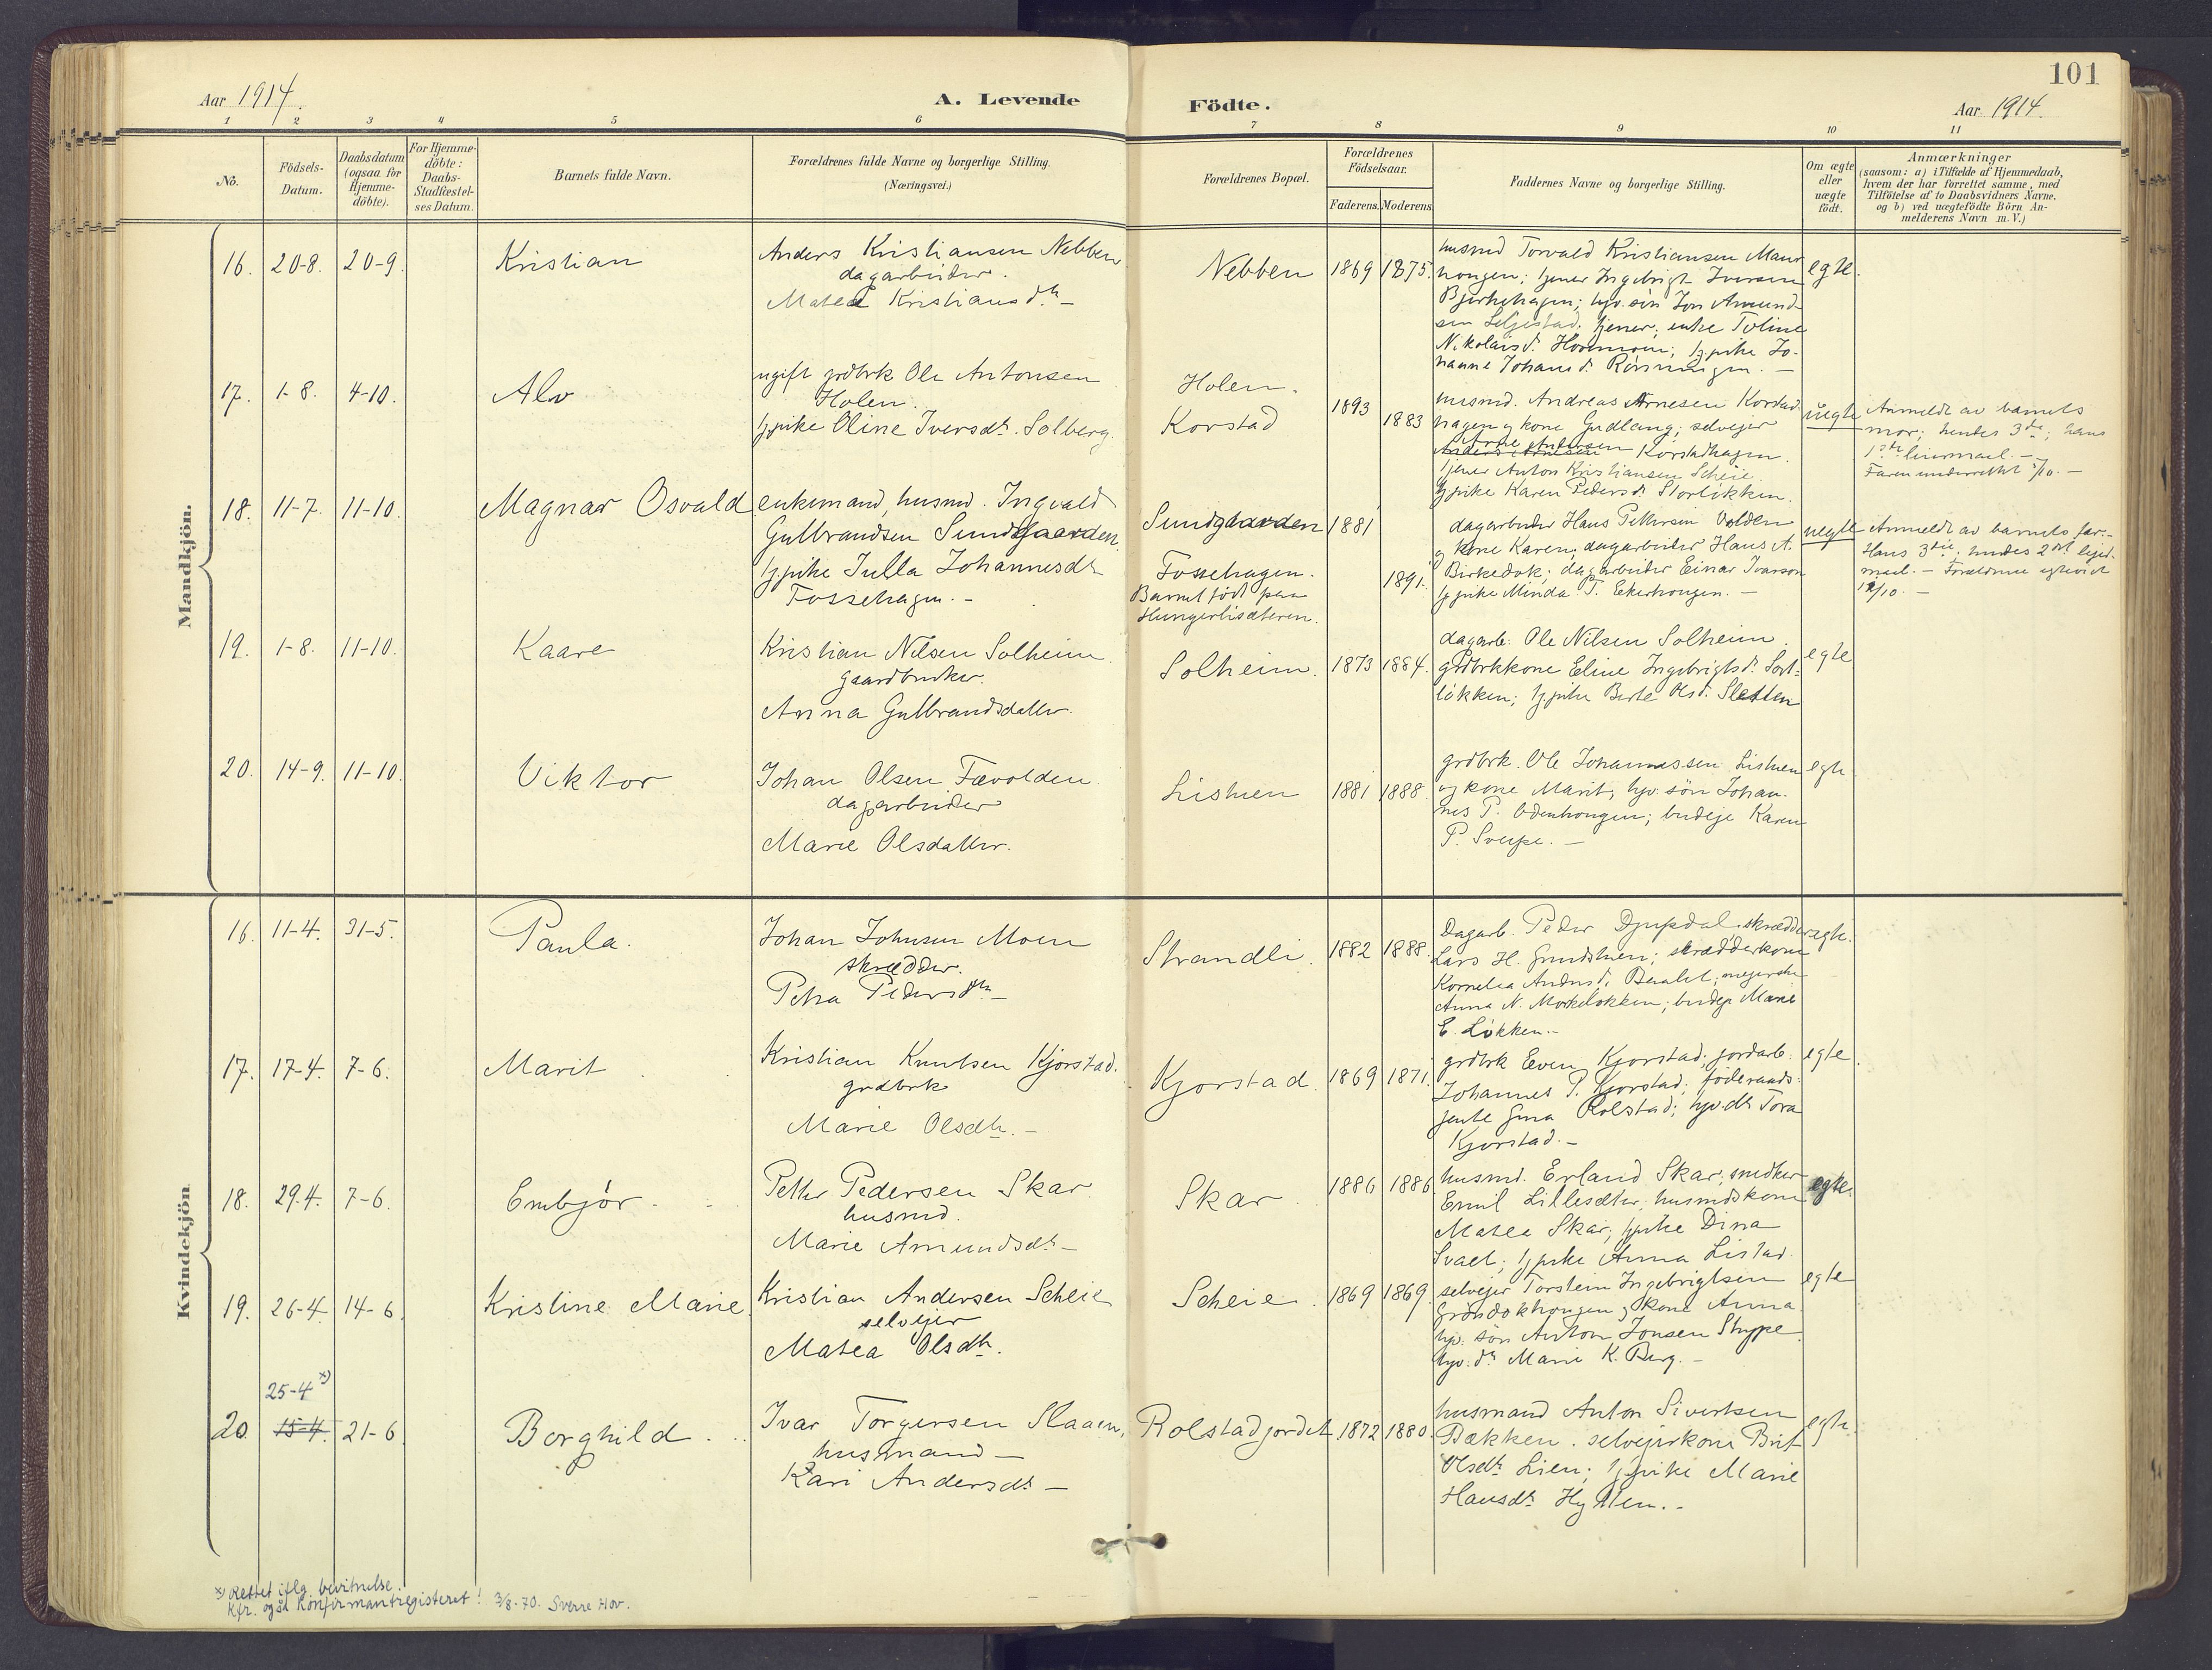 101
Aar 1914.
A. Levende Födte.
Aar 1914.
1 2 3 4 5 6 7 8 9 10 11
No.
Födsels-
Datum.
Daabsdatum
(ogsaa for
Hjemme-
döbte).
For Hjemme-
döbte:
Daabs-
Stadfæstel-
ses Datum.
Barnets fulde Navn.
Forældrenes fulde Navne og borgerlige Stilling.
(Næringsvei.)
Forældrenes Bopæl.
Forældrenes
Födselsaar.
Faderens. Moderens.
Faddernes Navne og borgerlige Stilling.
Om ægte
eller
uægte
födt.
Anmærkninger
(saasom: a) i Tilfælde af Hjemmedaab,
hvem der har forrettet samme, med
Tilföielse af to Daabsvidners Navne.
og b) ved uægtefödte Börn An-
melderens Navn m. V.)
Mandkjön.
16. 20-8. 20-9.
Kristian
Anders Kristiansen Nebben
dagarbeider.
Matea Kristiansdtr. -
Nebben 1869 1875.
husmd Torvald Kristiansen
tjener Ingebrigt Iversen
Bjerkehagen; hjv. sön Jon Amund-
sen tjener; enke Toline
Nikolaisdr. tj. pike Jo-
hanne Johansdr.
egte.
17. 1-8. 4-10.
Alv
ugift grdbrk Ole Antonsen
Holen.
tj. pike Oline Iversdtr. Solberg.
Holen.
Korstad
1893
1883
husmd. Andreas Arnesen Korstad-
hagen og kone Gudlaug; selveier
Korstadhagen.
tjener Anton Kristiansen Scheie.
tj. pike Karen Pedersdr. Storlökken.
uegte
Anmeldt av barnets
mor; hendes 3de; hans
1ste leiermaal. -
Faren underrettet
18. 11-7. 11-10.
Magnar Osvald
enkemand, husmd. Ingvald
Gulbrandsen Sundgaarden.
tj. pike Julla Johannesdtr
Fossehagen. -
Sundgaarden
Fossehagen.
Barnet födt paa
Hungerlisæteren.
1881
1891.
dagarbeider Hans Pettersen Volden
og kone Karen; dagarbeider Hans A.
Birkedok; dagarbeider Einar Ivarson
tj. pike Minda T. Ekerhongen. -
uegte
Anmeldt av barnets far. -
Hans 3die, hendes 2det leier-
maal. - Forældrene egteviet
19. 1-8. 11-10.
Kaare
Kristian Nilsen Solheim
gaardbruker.
Anna Gulbrandsdatter.
Solheim. 1873 1884.
dagarb. Ole Nilsen Solheim.
grdbrkkone Eline Ingebrigtsdr.
lökken; tj. pike Berte Olsdr. Sletten
egte
20. 14-9. 11-10.
Viktor
Johan Olsen Fævolden.
dagarbeider
Marie Olsdatter.
Listuen 1881 1888.
grdbrk. Ole Johannessen Listuen
og kone Marit; hjv. sön Johan-
nes P. Odenhongen; budeje Karen
P.
egte
Kvindekjön
16. 11-4. 31-5.
Paula.
Johan Johnsen Moen
skrædder.
Petra Pedersdtr. -
Strandli. 1882 1888.
Dagarb. Peder Djupdal, skrædder
Lars H. Grundstuen; skrædderkone
Kornelia
Anna N. budeje Marie
E. Lökken. -
egte.
17. 17-4. 7-6.
Marit
Kristian Knutsen Kjorstad.
grdbrk
Marie Olsdtr. -
Kjorstad 1869 1871.
grdbrk Even Kjorstad; jordarb.
Johannes P. Kjorstad; föderaads-
jente Gina Rolstad; hjv. dtr Tora
Kjorstad. -
egte.
18. 29-4. 7-6.
Embjör
Petter Pedersen Skar
husmd.
Marie Amundsdtr. -
Skar 1886 1886
husmd. Erland Skar; snedker
Emil Lillesæter; husmdskone
Matea Skar; tj. pike Dina
Svael; tj. pike Anna Listad.
egte.
19. 26-4. 14-6.
Kristine Marie
Kristian Andersen Scheie
selveier
Matea Olsdtr.
Scheie. 1869 1869.
selveier Torstein Ingebrigtsen
og kone Anna.
hjv. sön Anton Jonsen Stype.
hjv. dtr Marie K. Berg. -
egte
25-4 x)
20. 15-4. 21-6.
Borghild.
Ivar Torgersen Slaaen,
husmand -
Kari Andersdtr. -
Rolstadjordet 1872 1880.
husmand Anton Sivertsen
Bækken. selveierkone Brit
Olsdtr. Lien; tj. pike Marie
Hansdtr.
egte.
x) Rettet iflg. bevitnelse.
Kfr. også konfirmantregisteret! 3/8-70. Sverre Hov.